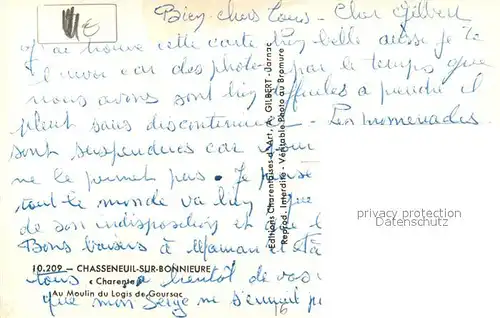 Bien chers tous - Cher Gilbert
J'ai trouvé cette carte très belle aussi je te
l'envoi car des photos par le temps que
nous avons sont bien difficiles a prendre il
pleut sans discontinuer - Les promenades
sont suspendues car
ne le permet pas. Je pense
tout le monde va bien que
de son indisposition et
Bons baisers à Maman et
10.209 — CHASSENEUIL-SUR-BONNIEURE
« Charente »
tous a bientôt de vos
Au Moulin du Logis de Goursac
que mon Serge ne s'ennuit
Editions Charentaises d'Art, A. GILBERT - Jarnac
Reprod. Interdite - Véritable Photo au Bromure
privacy protection